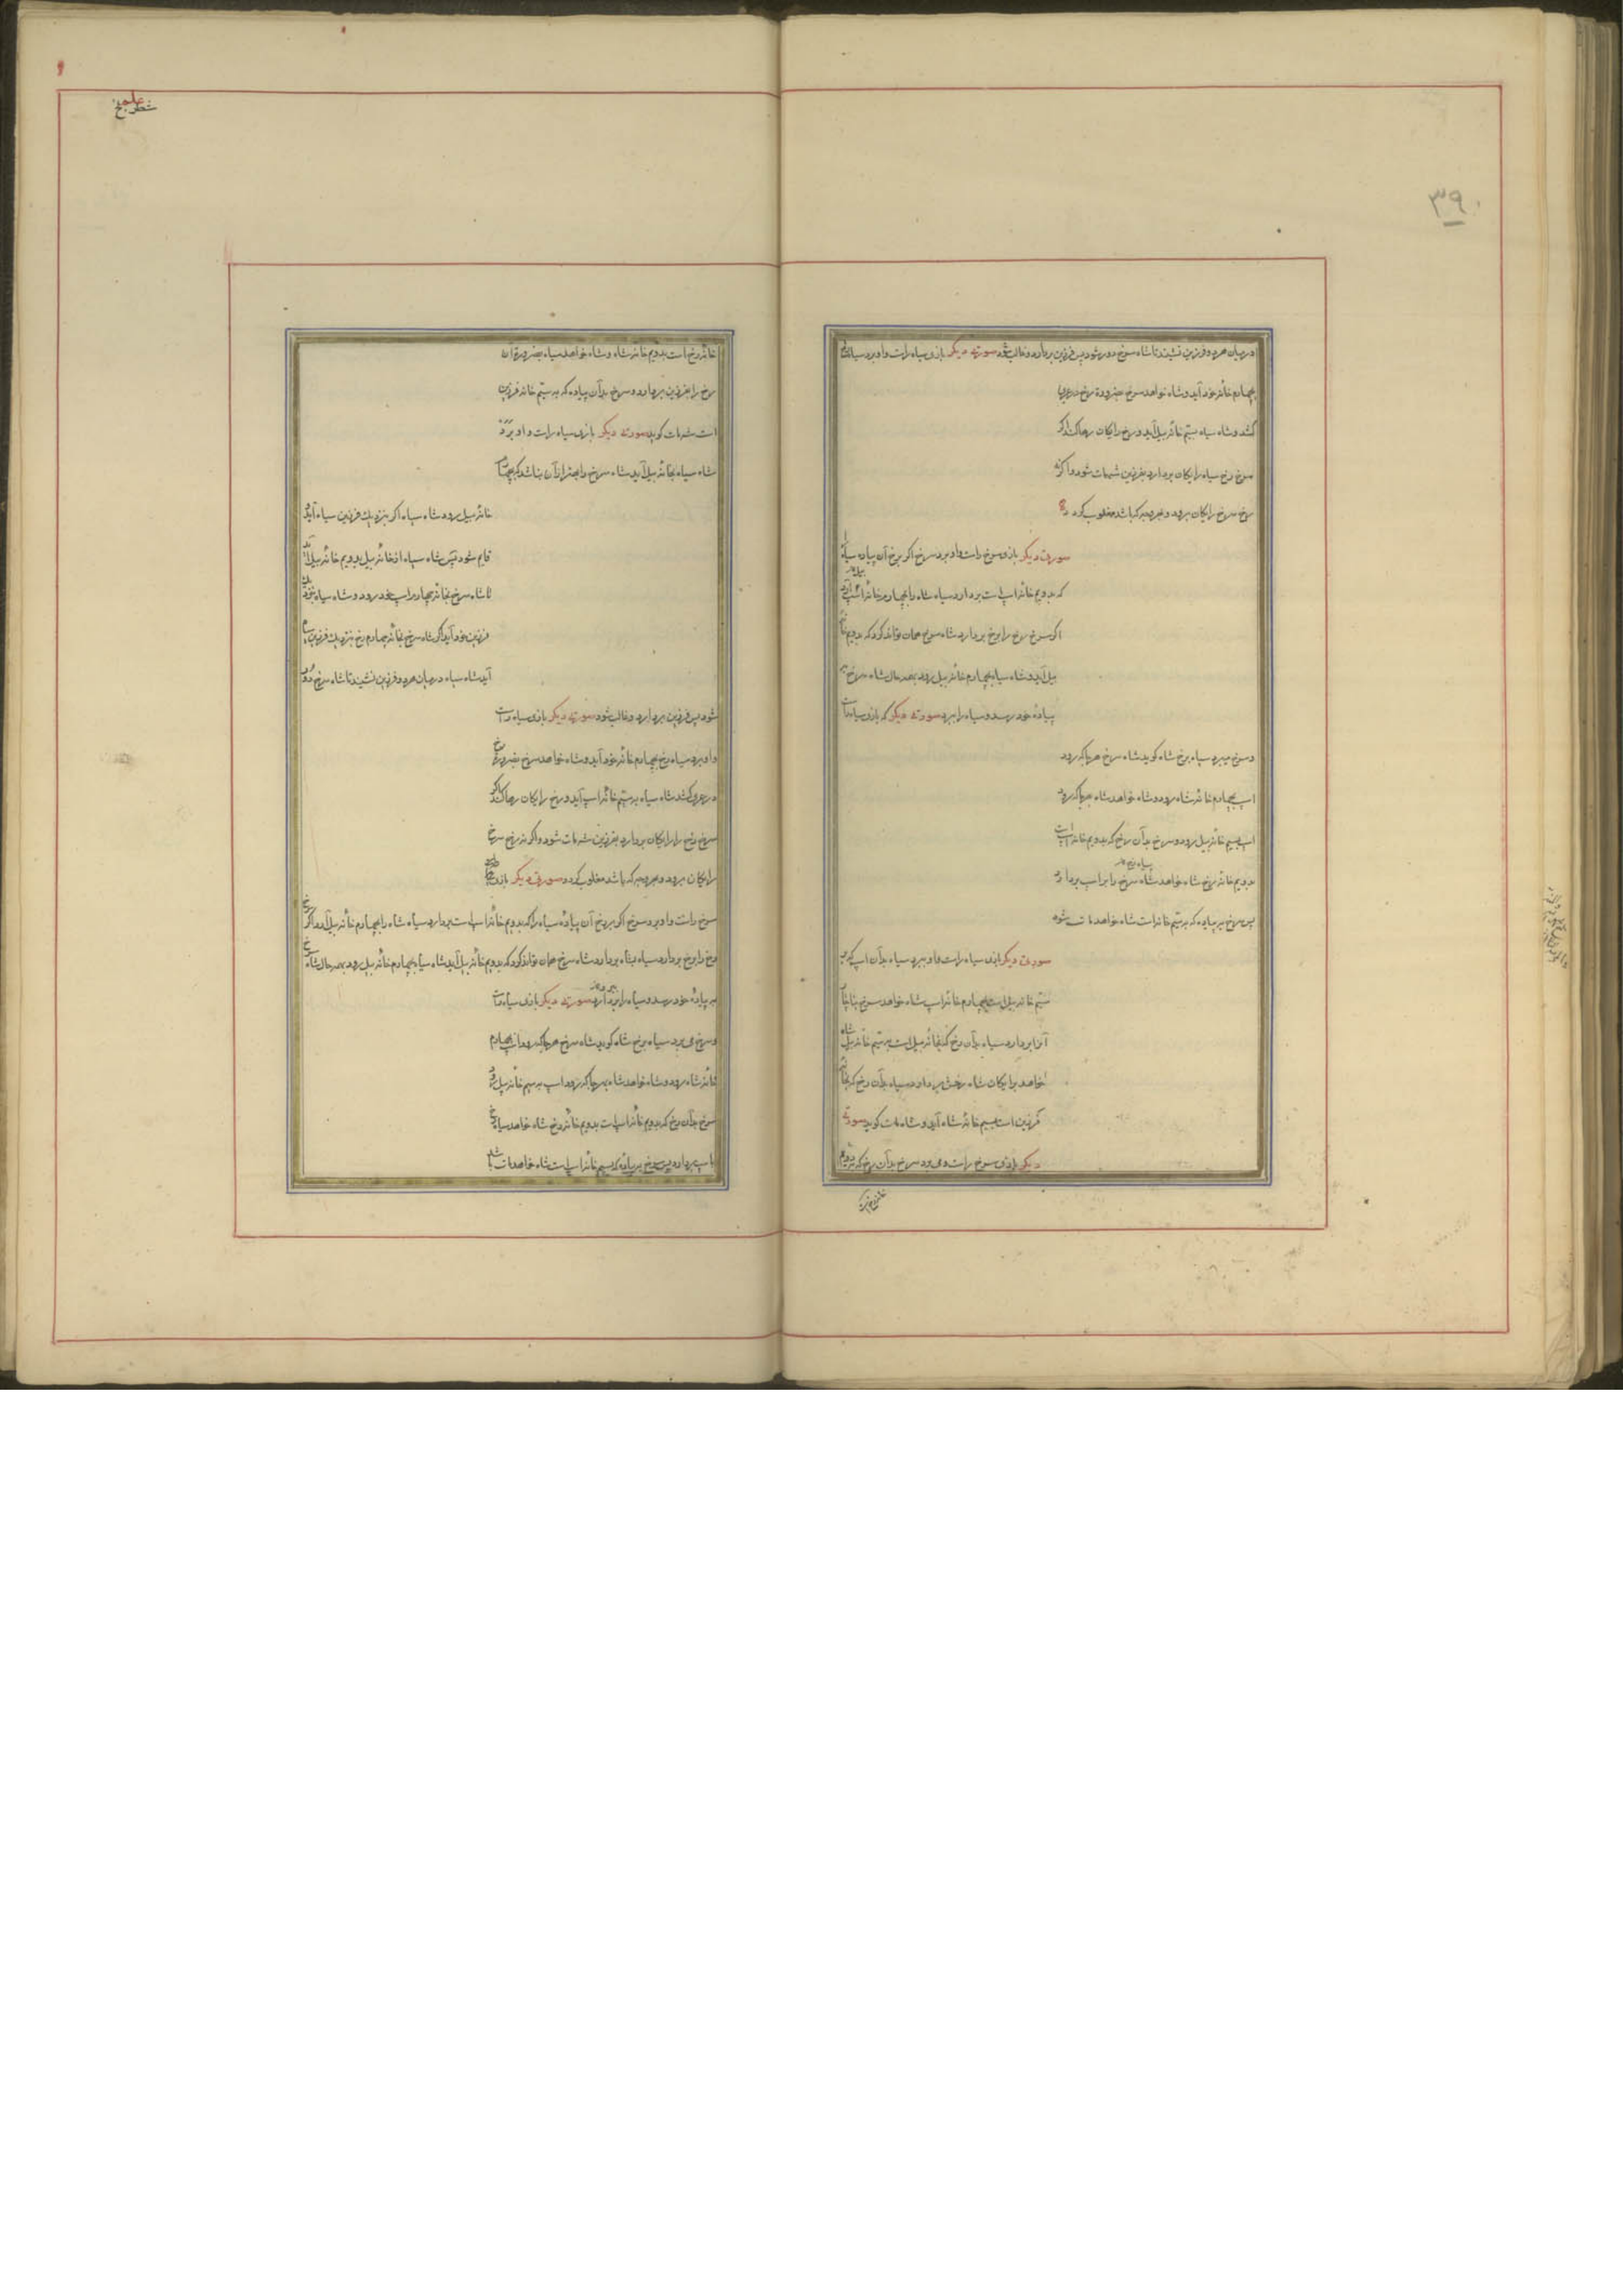 ۳۹۰
در میان هر دو فرزین نشیند تا شاه سرخ دور شود پس فرزین بردارد و غالب شود صورتی دیگر بازی سیاه راست و او برد سیاه رخ
بچهارم خانه خود آید و شاه خواهد سرخ بضرورة رخ در عری
کشد و شاه سیاه بسیم خانه پیل آید و رخ رایکان رها کند اکر
سرخ رخ سیاه رایکان بردارد بفرزین شهمات شود و اکر نه
رخ سرخ رایکان برود و بهر وجه که باشد مغلوب کردد
صورتی دیکر بازی سرخ راست و او برد سرخ اکر برخ آن پیاده سیاه
که بدویم خانه اسپ است بردارد سیاه شاه را بچهارم خانه اسپ آرد
اکر سرخ رخ را برخ بردارد شاه سرخ همان تواند کرد که بدویم خانه
پیل آید و شاه سیاه بچهارم خانه پیل رود بهمه حال شاه سرخ به
پیادهٔ خود رسد و سیاه را برد صورتی دیکر که بازی سیاه راست
و سرخ میبرد سیاه برخ شاه کوید شاه سرخ هر جا که رود
اسپ بچهارم خانه شاه رود و شاه خواهد شاه بهر جا که رود
اسپ بسیم خانه پیل رود و سرخ بدآن رخ که بدویم خانه اسپ است
بدویم خانه رخ شاه خواهد شاه سرخ را براسپ بردارد
پس سرخ بر پیاده که بر سیم خانه است شاه خواهد مات شود
صورتی دیکر بازی سیاه راست و او ببرد سیاه بدآن اسپ که بر
سیم خانه پیل است بچهارم خانه اسپ شاه خواهد سرخ بناچار
آنرا بردارد سیاه بدآن رخ که بخانه پیل است بر سیم خانه پیل شاه
خواهد برایکان شاه رخش بردارد سیاه بدآن رخ که بخانه
فرزین است بسیم خانه شاه آید و شاه مات کوید صورتی
دیکر بازی سرخ راست و می برد سرخ بدآن رخ که بدویم
علم شطرنج
خانه رخ است بدویم خانه شاه و شاه خواهد سیاه بضرورة آن
رخ را بفرزین بردارد و سرخ بدآن پیاده که به سیم خانه فرزین
است شه مات کوید صورتی دیکر بازی سیاه راست و او برد
شاه سیاه بخانه پیل آید شاه سرخ را بهتر از آن نباشد که بچهارم
خانه پیل رود شاه سیاه اکر بنزدیک فرزین سیاه آید
قایم شود پس شاه سیاه از خانه پیل بدویم خانه پیل آید
تا شاه سرخ بخانه چهارم اسپ خود رود و شاه سیاه بنزدیک
فرزین خود آید اکر شاه سرخ بخانه چهارم رخ بنزدیک فرزین سیاه
آید شاه سیاه در میان هر دو فرزین نشیند تا شاه سرخ دور
شود پس فرزین بردارد و غالب شود صورتی دیکر بازی سیاه راست
و او برد سیاه رخ بچهارم خانه خود آید و شاه خواهد سرخ بضرورة رخ
در عری کشد شاه سیاه به سیم خانه اسپ آید و رخ رایکان رها کند اکر
سرخ رخ را رایکان بردارد بفرزین شه مات شود و اکر نه رخ سرخ
رایکان برود و بهر وجه که باشد مغلوب کردد صورتی دیکر بازی
سرخ راست و او برد سرخ اکر برخ آن پیادهٔ سیاه را که بدویم خانه اسپ است بردارد سیاه شاه را بچهارم خانه پیل آرد و اکر سرخ
رخ را برخ بردارد سیاه بشاه بردارد شاه سرخ همان تواند کرد که بدویم خانه پیل آید شاه سیاه بچهارم خانه پیل رود بهمه حال شاه سرخ
به پیادهٔ خود رسد و سیاه را ببرد صورتی دیکر بازی سیاه راست
و سرخ می برد سیاه برخ شاه کوید شاه سرخ هر جا که رود اسپ بچهارم
خانه شاه رود و شاه خواهد شاه بهر جا که رود اسپ به سیم خانه پیل رود
سرخ بدآن رخ که بدویم خانه اسپ است بدویم خانه رخ شاه خواهد سیاه رخ
باسپ بردارد پس سرخ بر پیاده که بسیم خانه اسپ است شاه خواهد مات شود